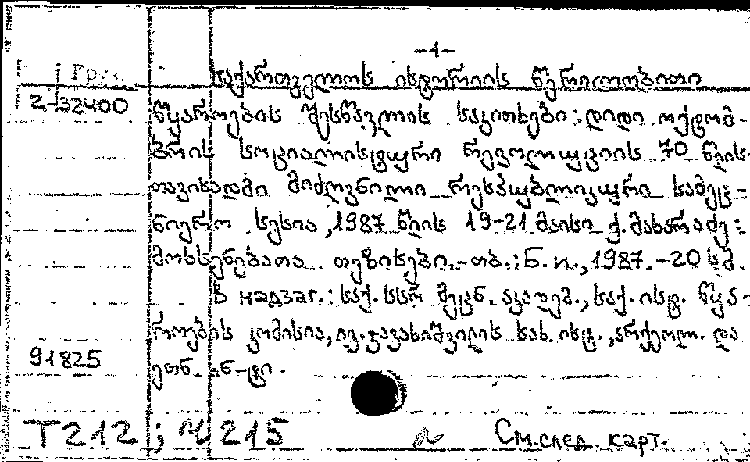 -1-
Груз. საქართველოს ისტორიის წერილობითი
2-32400 წყაროების შესწავლის საკითხები: დიდი ოქტომ-
ბრის სოციალისტური რევოლუციის 70 წლის-
თავისადმი მიძღვნილი რესპუბლიკური სამეც-
ნიერო სესია, 1987 წლის 19-21 მაისი ქ. მახარაძე:
მოხსენებათა თეზისები.-თბ.: Б.и., 1987.-20 სმ.
В надзаг.: საქ. სსრ მეცნ. აკადემ., საქ. ისტ. წყა-
როების კომისია, ივ. ჯავახიშვილის სახ. ისტ., არქეოლ. და
91825 ეთნ. ინ-ტი.
Т212; 4215 См. след. карт.